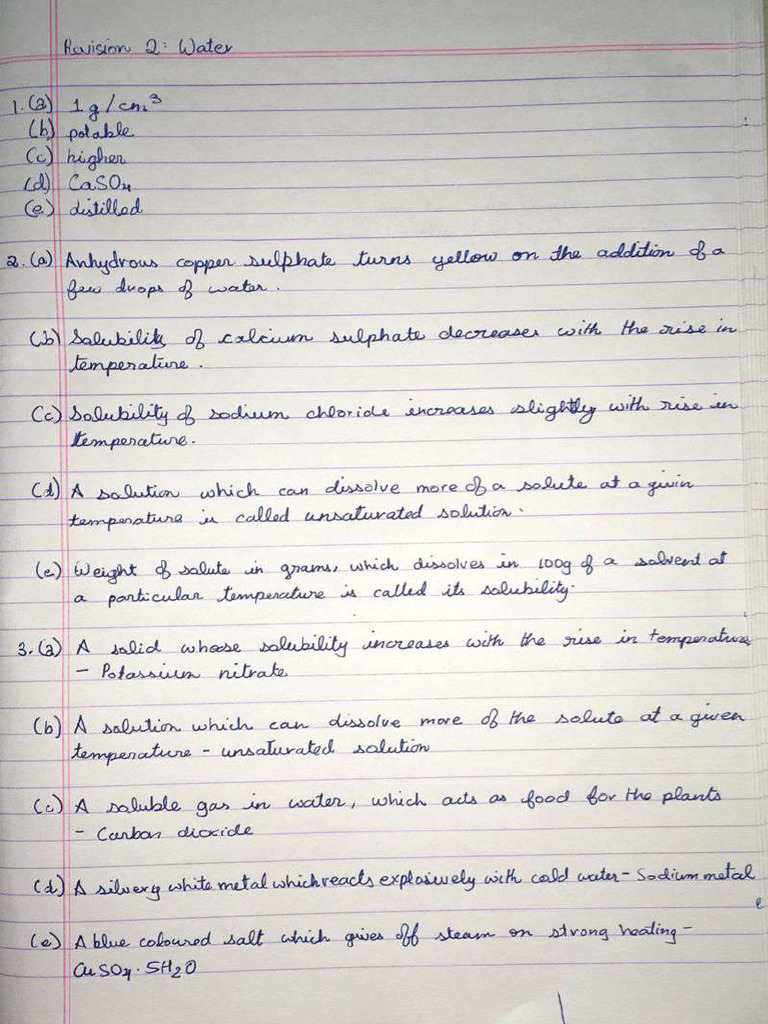 Revision 2: Water
1. (a) 1 g/cm³
(b) potable
(c) higher
(d) CaSO4
(e) distilled
2. (a) Anhydrous copper sulphate turns yellow on the addition of a
few drops of water.
(b) Solubility of calcium sulphate decreases with the rise in
temperature.
(c) Solubility of sodium chloride increases slightly with rise in
temperature.
(d) A solution which can dissolve more of a solute at a givin
temperature is called unsaturated solution.
(e) Weight of solute in grams, which dissolves in 100g of a solvent at
a particular temperature is called its solubility.
3. (a) A solid whose solubility increases with the rise in temperature
- Potassium nitrate
(b) A solution which can dissolve more of the solute at a given
temperature - unsaturated solution
(c) A soluble gas in water, which acts as food for the plants
- Carbon dioxide
(d) A silvery white metal which reacts explosively with cold water - Sodium metal
(e) A blue coloured salt which gives off steam on strong heating -
CuSO4·5H2O